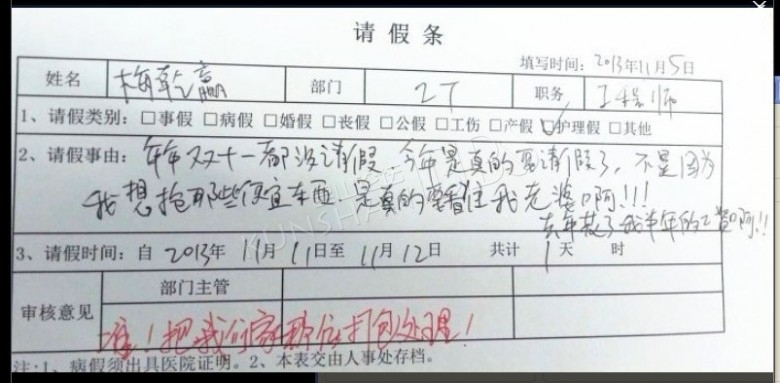 请假条
填写时间：2013年11月5日
姓名 梅乾赢 部门 IT 职务 工程师
1、请假类别：□事假 □病假 □婚假 □丧假 □公假 □工伤 □产假 ☑护理假 □其他
2、请假事由：年年双十一都没请假 今年是真的要请假了，不是因为
我想抢那些便宜东西 是真的要看住我老婆啊!!!
去年败了我半年的工资啊!!
3、请假时间：自 2013年 11月 11日至 11月 12日 共计 1 天 时
部门主管
审核意见
准！把我们家那位打包处理！
注：1、病假须出具医院证明。2、本表交由人事处存档。